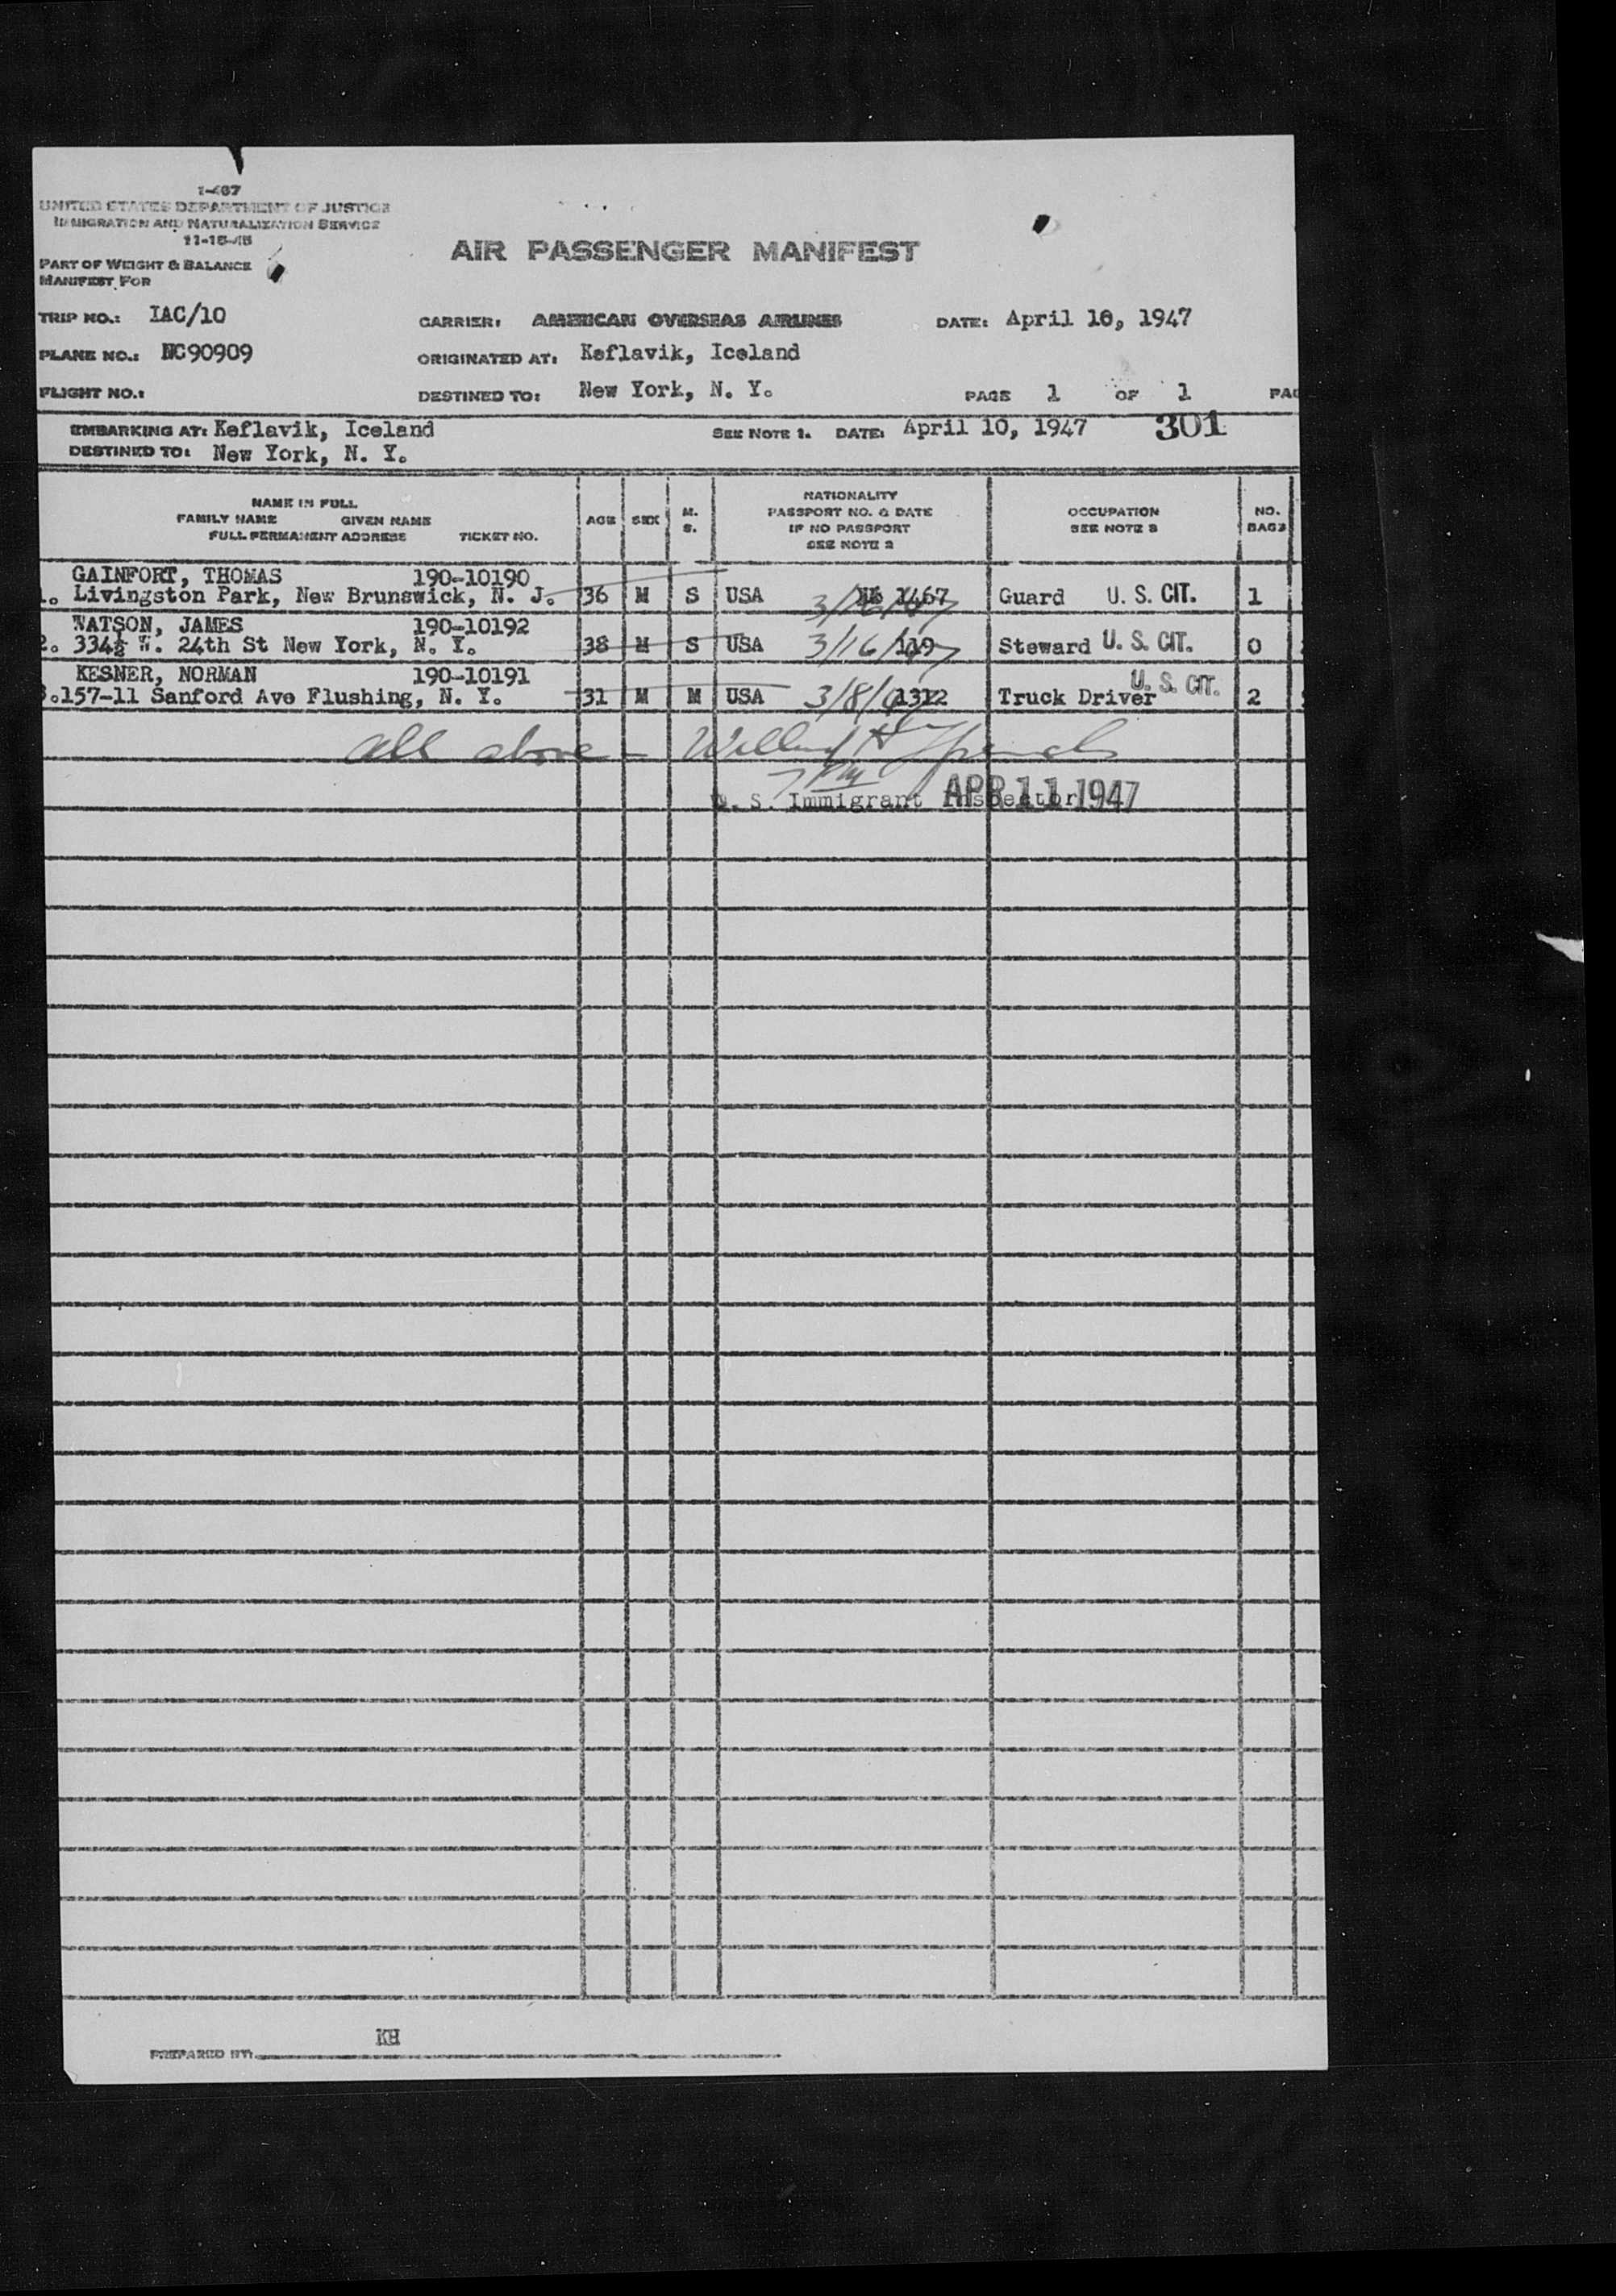 I-467
UNITED STATES DEPARTMENT OF JUSTICE
IMMIGRATION AND NATURALIZATION SERVICE
11-15-45
PART OF WEIGHT & BALANCE
MANIFEST FOR
AIR PASSENGER MANIFEST
TRIP NO.: IAC/10 CARRIER: AMERICAN OVERSEAS AIRLINES DATE: April 10, 1947
PLANE NO.: NC90909 ORIGINATED AT: Keflavik, Iceland
FLIGHT NO.: DESTINED TO: New York, N. Y. PAGE 1 OF 1 PAG
EMBARKING AT: Keflavik, Iceland SEE NOTE 1. DATE: April 10, 1947 301
DESTINED TO: New York, N. Y.
NAME IN FULL
FAMILY NAME GIVEN NAME
FULL PERMANENT ADDRESS TICKET NO.
AGE SEX M. S.
NATIONALITY
PASSPORT NO. & DATE
IF NO PASSPORT
SEE NOTE 2
OCCUPATION
SEE NOTE 3
NO. BAGS
GAINFORT, THOMAS 190-10190
1. Livingston Park, New Brunswick, N. J. 36 M S USA 1467 Guard U. S. CIT. 1
WATSON, JAMES 190-10192
2. 334½ W. 24th St New York, N. Y. 38 M S USA 3/16/47 Steward U. S. CIT. 0
KESNER, NORMAN 190-10191
3. 157-11 Sanford Ave Flushing, N. Y. 31 M M USA 3/8/47 1312 Truck Driver U. S. CIT. 2
all above -
U. S. Immigrant Inspector APR 11 1947
KH
PREPARED BY: